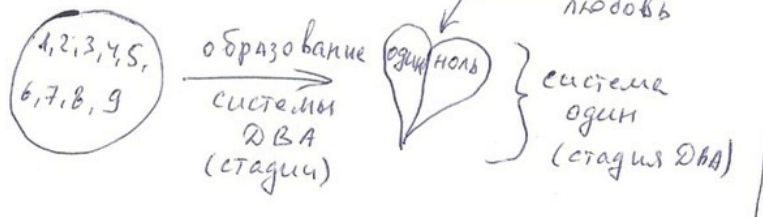 любовь
1, 2, 3, 4, 5,
6, 7, 8, 9
образование
системы
ДВА
(стадии)
один ноль
система
один
(стадия ДВА)